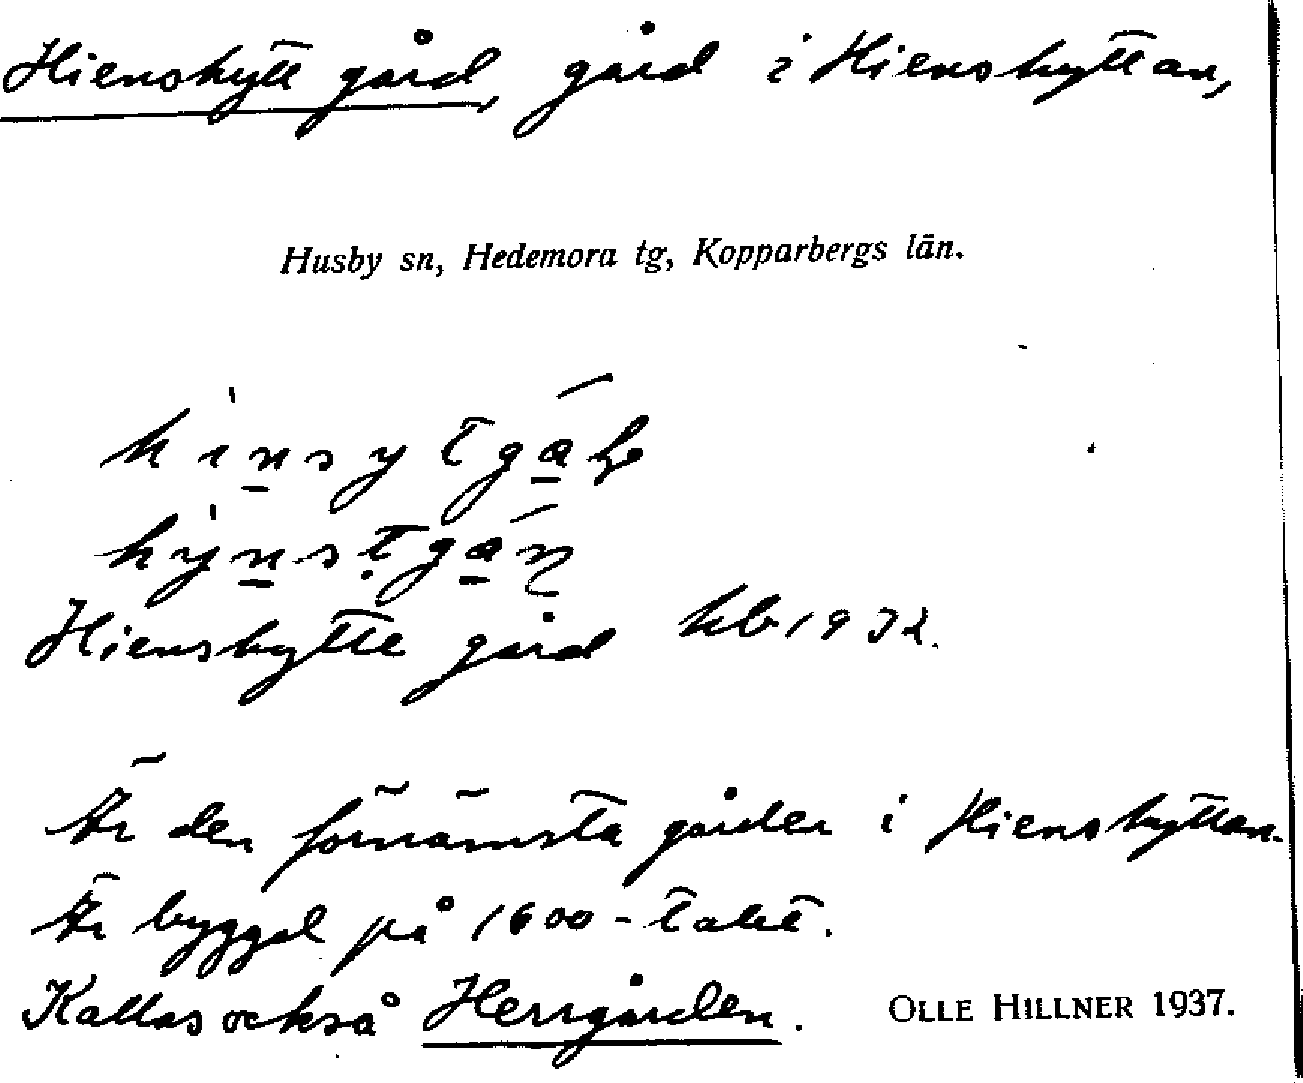 Hienshytt gård, gård i Hienshyttan,
Husby sn, Hedemora tg, Kopparbergs län.
Hienshytte gård hb 1932.
Är den förnämsta gården i Hienshyttan.
Är byggd på 1600-talet.
Kallas också Herrgården.
OLLE HILLNER 1937.